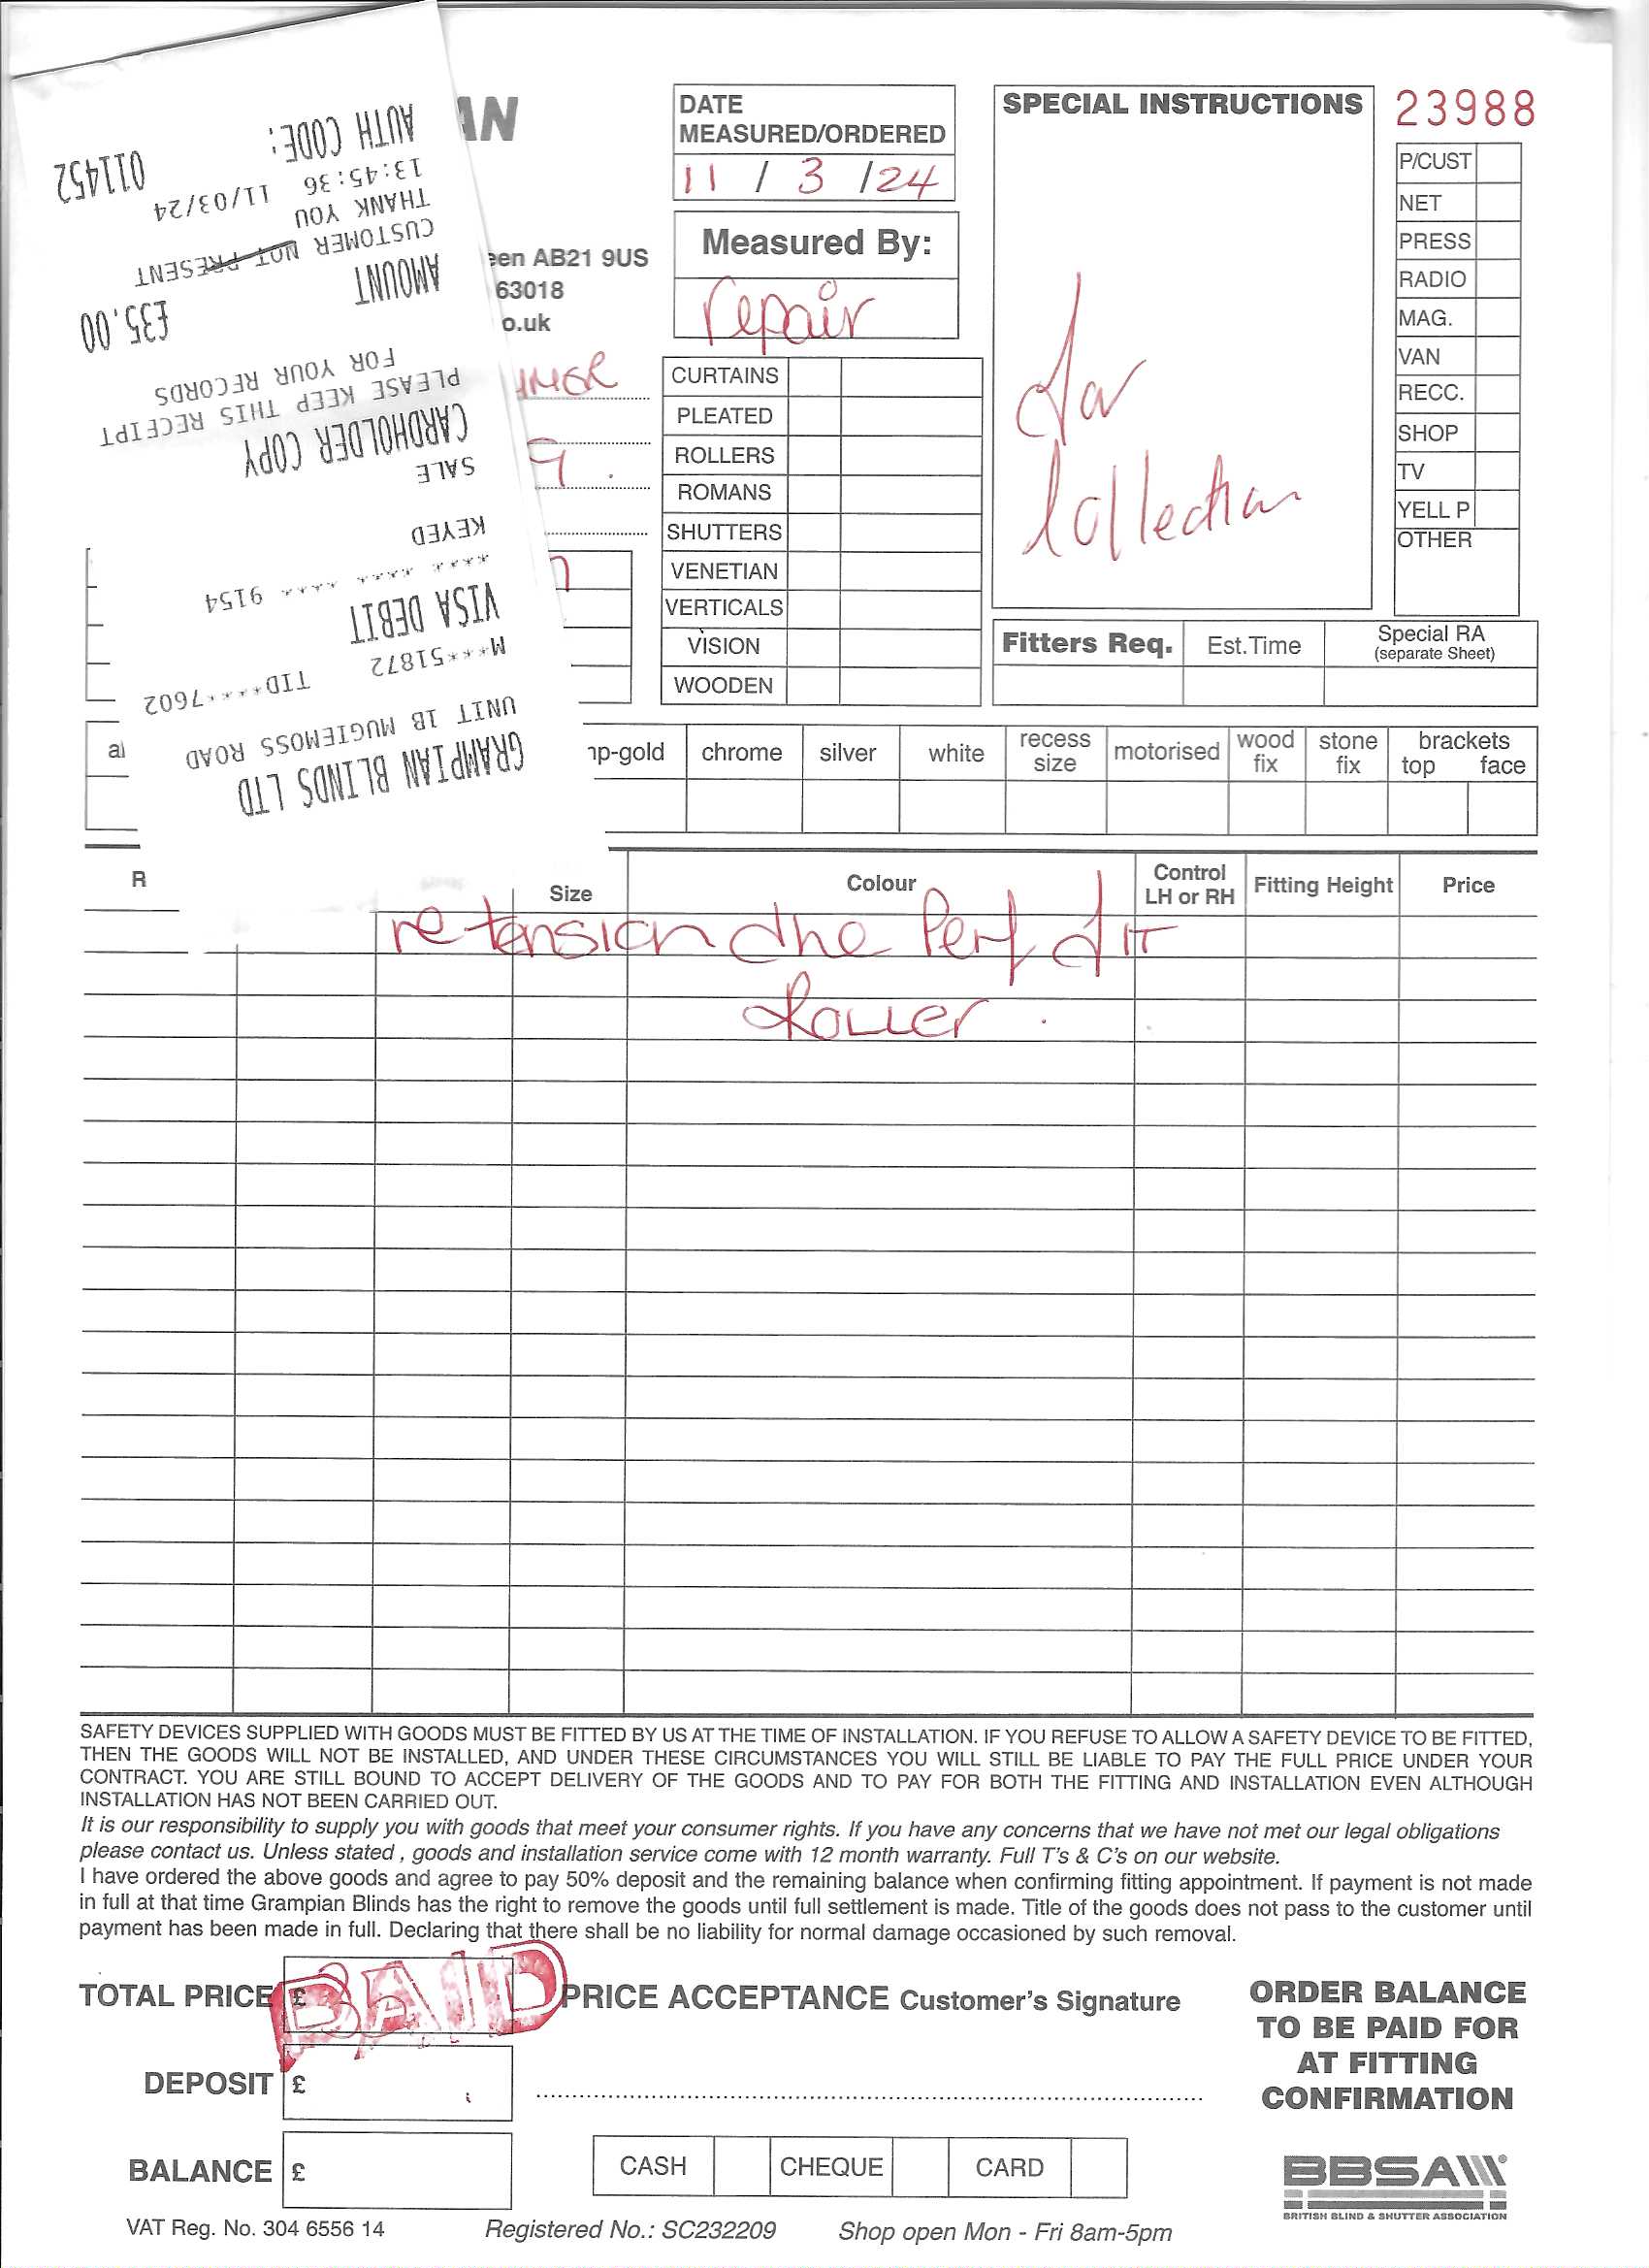 GRAMPIAN BLINDS LTD
UNIT 1B MUGIEMOSS ROAD
M***51872 TID****7602
VISA DEBIT
**** **** **** 9154
KEYED
SALE
CARDHOLDER COPY
PLEASE KEEP THIS RECEIPT
FOR YOUR RECORDS
AMOUNT £35.00
CUSTOMER NOT PRESENT
THANK YOU
13:45:36 11/03/24
AUTH CODE: 011452
AN
een AB21 9US
63018
o.uk
DATE
MEASURED/ORDERED
11 / 3 /24
Measured By:
repair
CURTAINS
PLEATED
ROLLERS
ROMANS
SHUTTERS
VENETIAN
VERTICALS
VISION
WOODEN
SPECIAL INSTRUCTIONS
for
Collection
23988
P/CUST
NET
PRESS
RADIO
MAG.
VAN
RECC.
SHOP
TV
YELL P
OTHER
Fitters Req. Est.Time Special RA
(separate Sheet)
al np-gold chrome silver white recess size motorised wood fix stone fix brackets top face
R Size Colour Control LH or RH Fitting Height Price
retension the Perf fit
Roller.
SAFETY DEVICES SUPPLIED WITH GOODS MUST BE FITTED BY US AT THE TIME OF INSTALLATION. IF YOU REFUSE TO ALLOW A SAFETY DEVICE TO BE FITTED,
THEN THE GOODS WILL NOT BE INSTALLED, AND UNDER THESE CIRCUMSTANCES YOU WILL STILL BE LIABLE TO PAY THE FULL PRICE UNDER YOUR
CONTRACT. YOU ARE STILL BOUND TO ACCEPT DELIVERY OF THE GOODS AND TO PAY FOR BOTH THE FITTING AND INSTALLATION EVEN ALTHOUGH
INSTALLATION HAS NOT BEEN CARRIED OUT.
It is our responsibility to supply you with goods that meet your consumer rights. If you have any concerns that we have not met our legal obligations
please contact us. Unless stated , goods and installation service come with 12 month warranty. Full T's & C's on our website.
I have ordered the above goods and agree to pay 50% deposit and the remaining balance when confirming fitting appointment. If payment is not made
in full at that time Grampian Blinds has the right to remove the goods until full settlement is made. Title of the goods does not pass to the customer until
payment has been made in full. Declaring that there shall be no liability for normal damage occasioned by such removal.
TOTAL PRICE £ PAID PRICE ACCEPTANCE Customer's Signature
DEPOSIT £
BALANCE £
CASH CHEQUE CARD
ORDER BALANCE
TO BE PAID FOR
AT FITTING
CONFIRMATION
BBSA
BRITISH BLIND & SHUTTER ASSOCIATION
VAT Reg. No. 304 6556 14 Registered No.: SC232209 Shop open Mon - Fri 8am-5pm